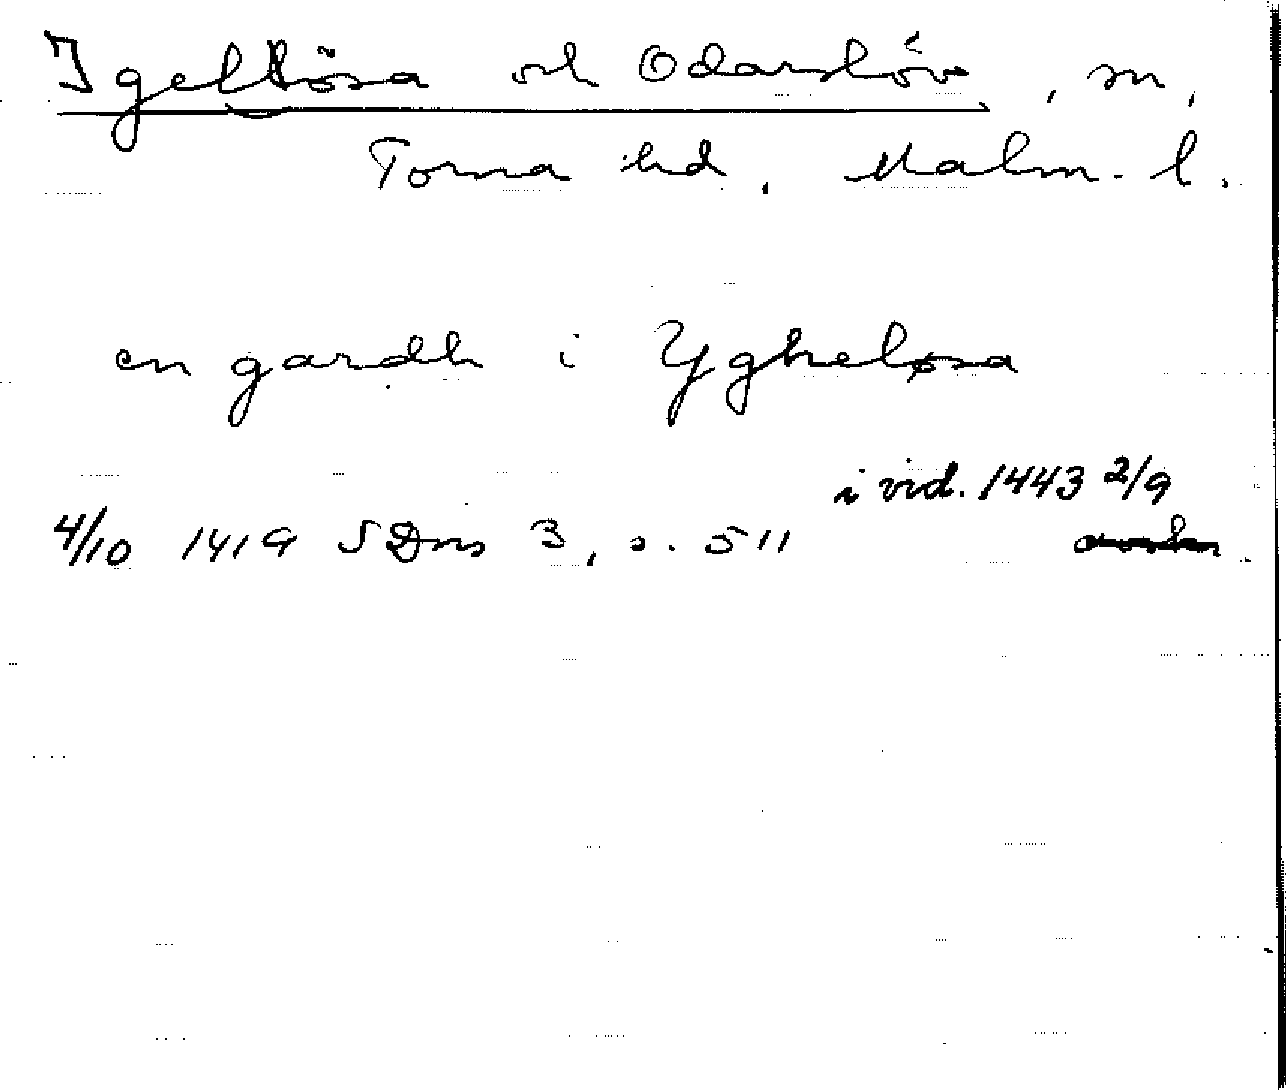 Igellösa och Odarslöv, sn,
Torna hd, Malm. l.
en gardh i Ygheløsa
i vid. 1443 2/9
4/10 1419 SDns 3, s. 511